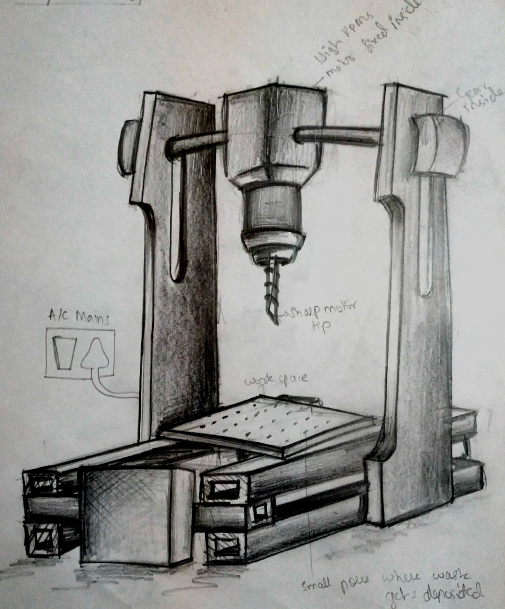 High rpms
motor fixed inside
Gears
inside
A/C Mains
sharp motor
tip
work space
small pores where waste
gets deposited